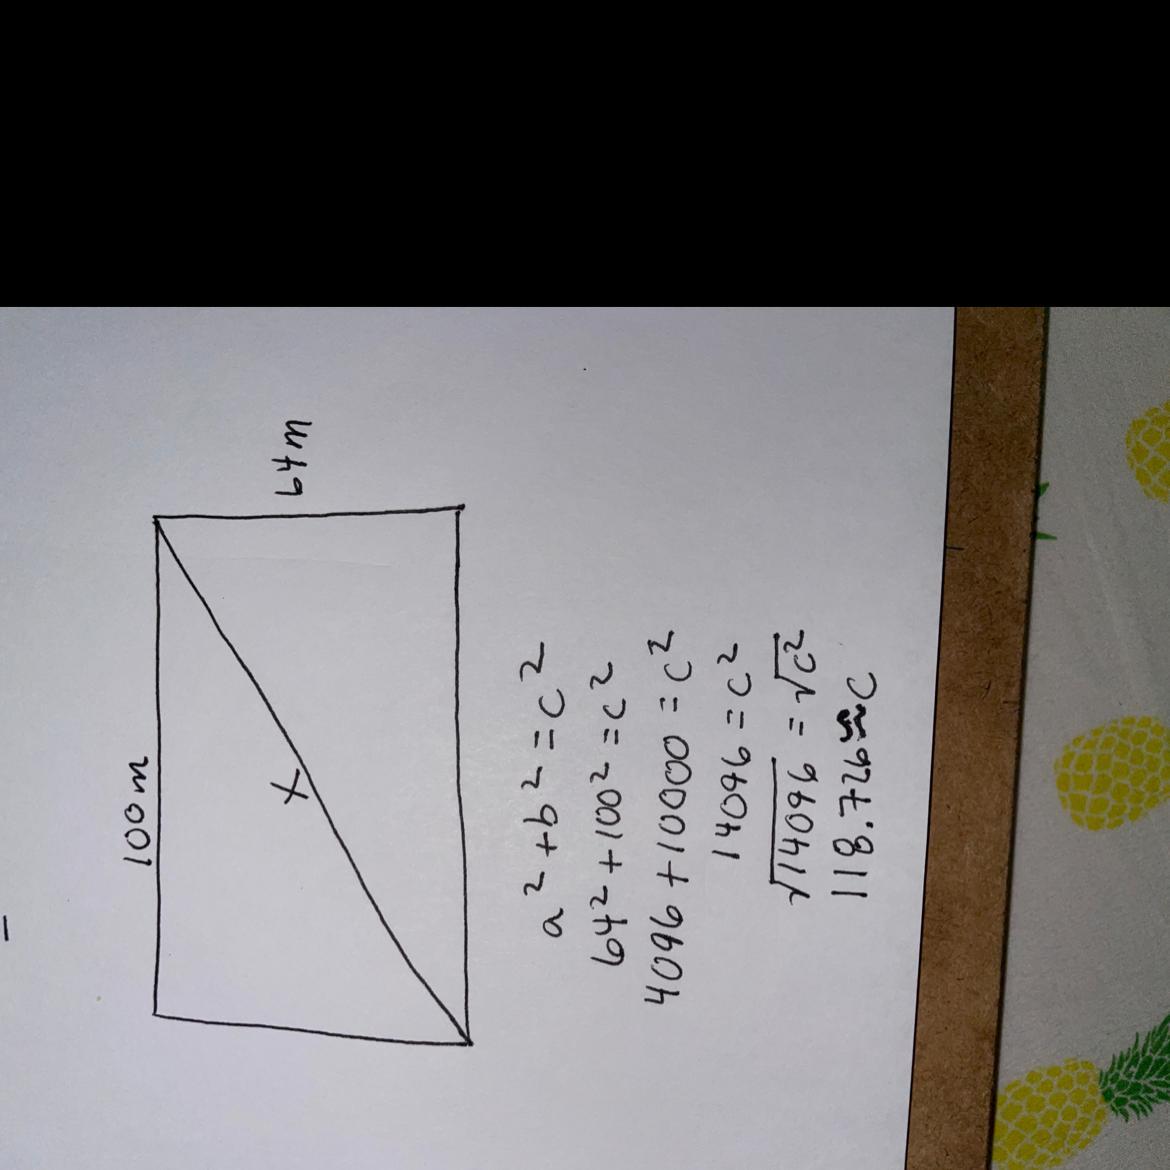 100m
64m
X
a² + b² = c²
64² + 100² = c²
4096 + 10000 = c²
14096 = c²
√14096 = √c²
118.726 ≈ c